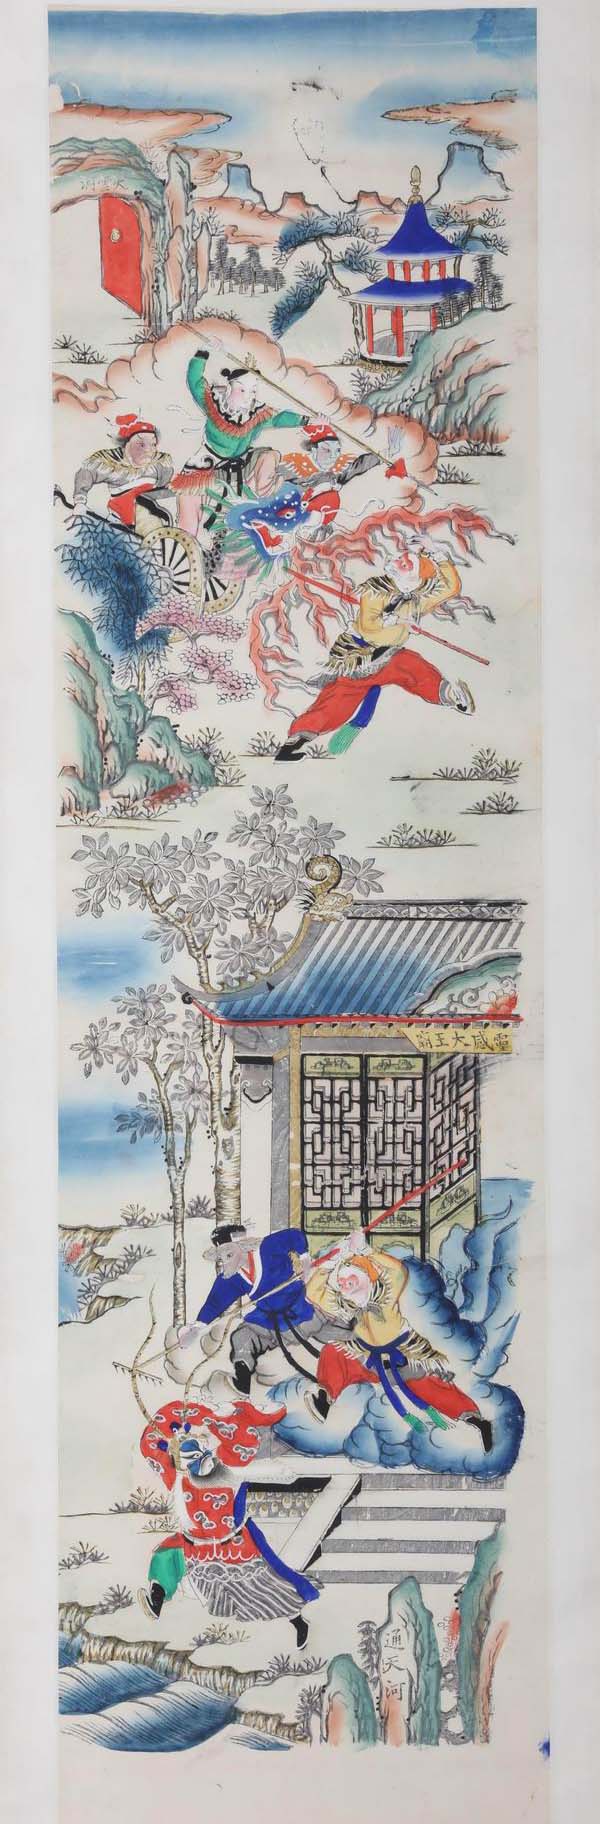 火雲洞
靈感大王廟
通天河